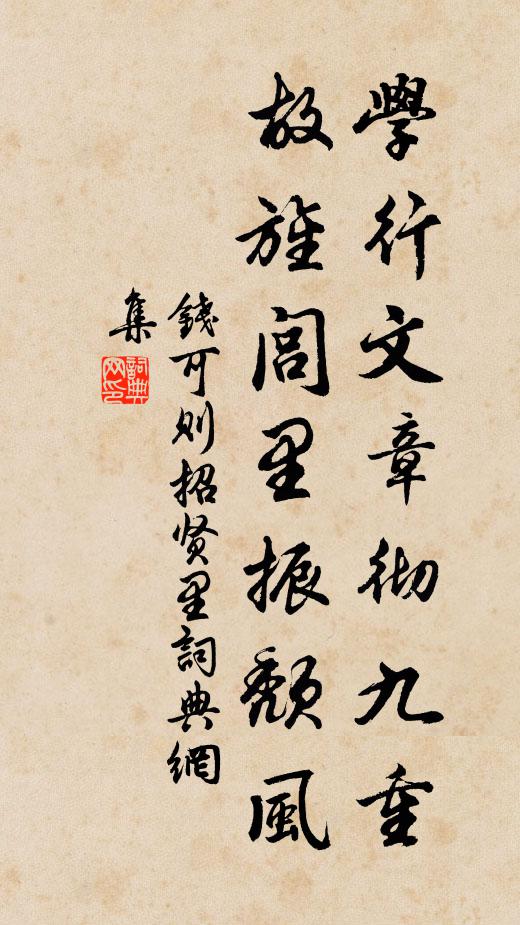 學行文章彻九重
故旌閭里振颓風
錢可则招贤里詞典網
集
詞典
网印